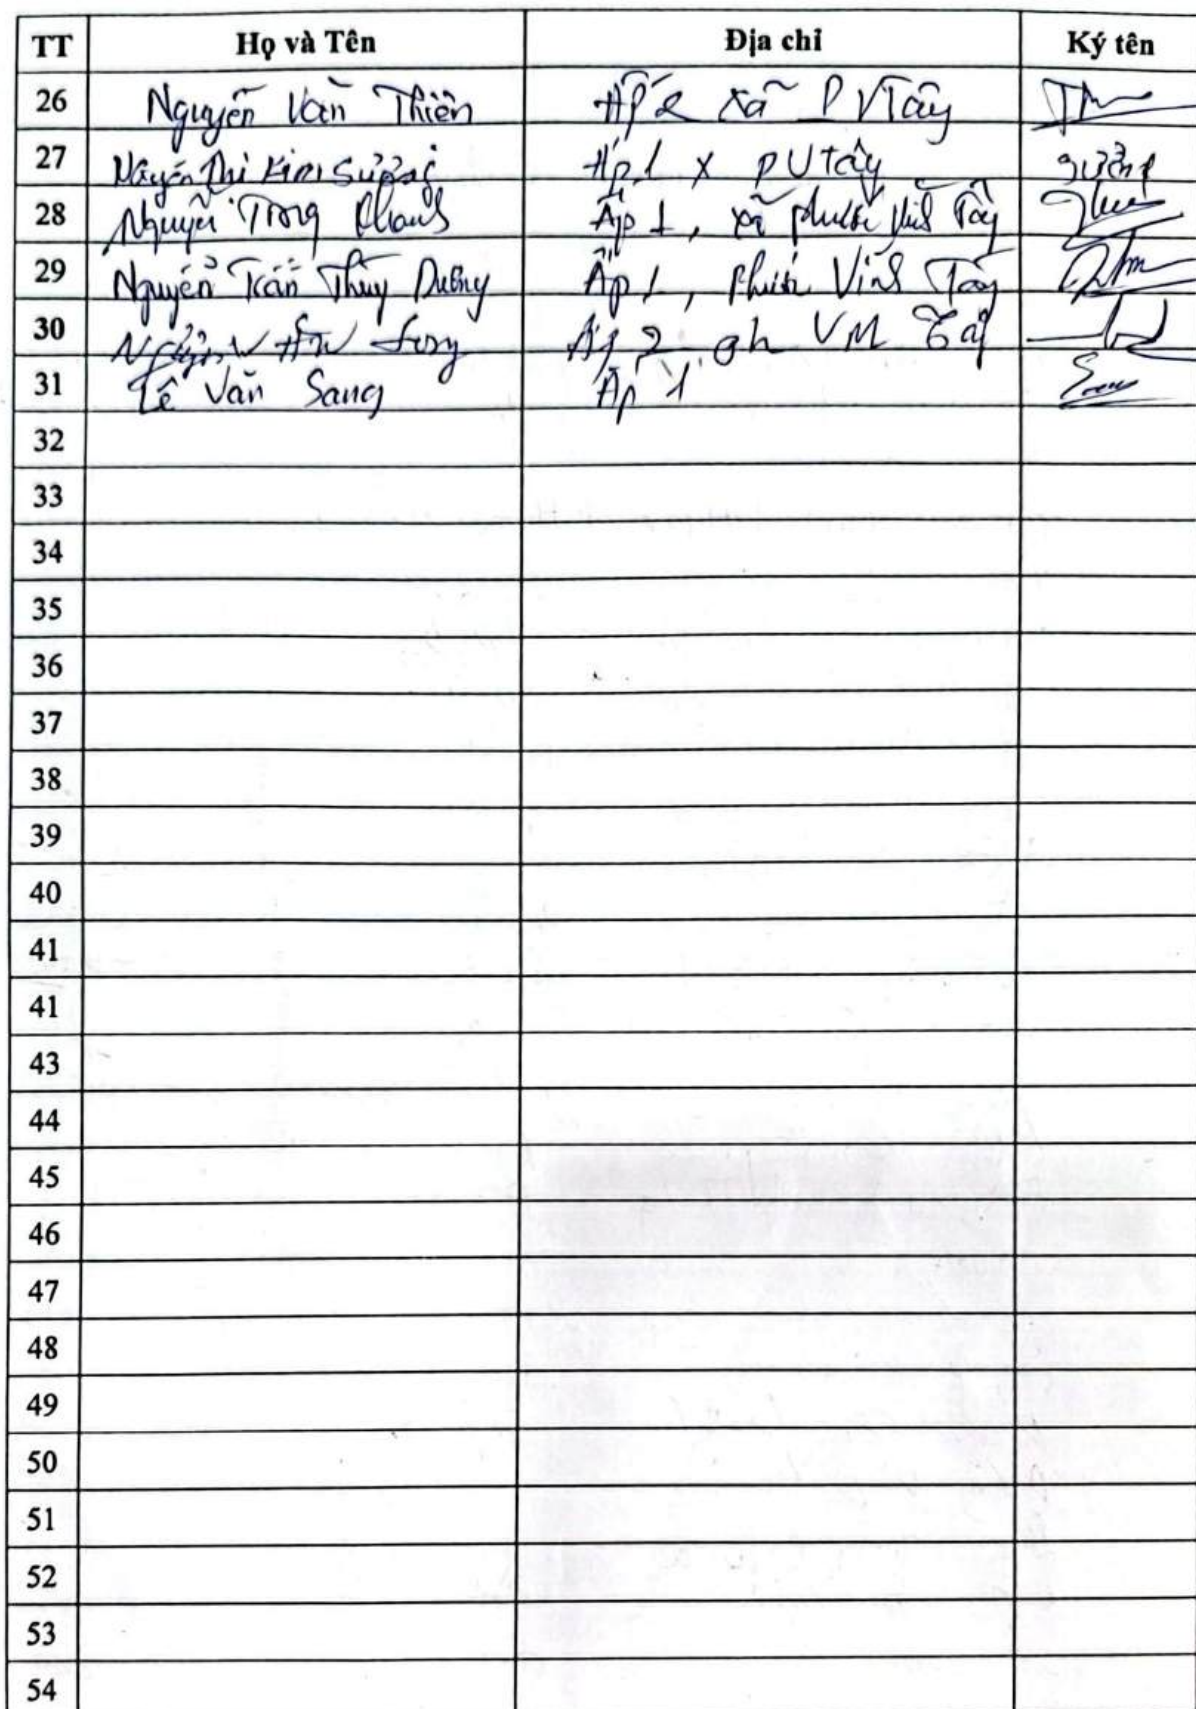 TT Họ và Tên Địa chỉ Ký tên
26 Nguyễn Văn Thiên Ấp 2 xã P V Tây
27 Nguyễn Thị Kim Ấp 1 X P V Tây
28 Nguyễn Trọng Ấp 1, xã Phước Vĩnh Tây
29 Nguyễn Trần Thùy Dương Ấp 1, Phước Vĩnh Tây
30 Ấp 2 Tây
31 Lê Văn Sang Ấp 1
32
33
34
35
36
37
38
39
40
41
41
43
44
45
46
47
48
49
50
51
52
53
54